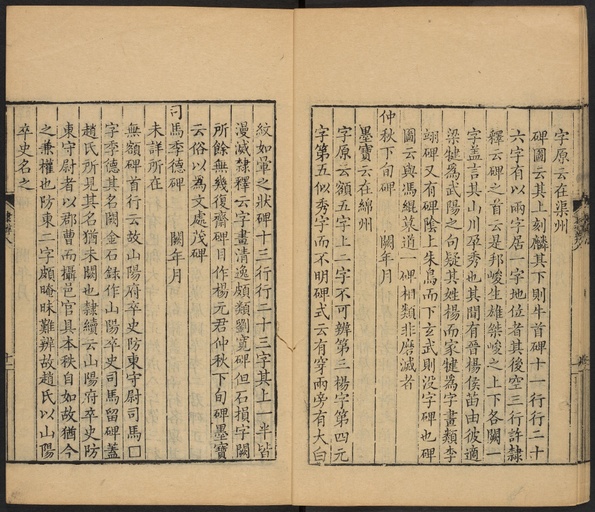 字原云在渠州
碑圖云其上刻麟其下則牛首碑十一行行二十
六字有以兩字居一字地位者其後空三行許隸
釋云碑之首云是邦峻生雄桀峻之上下各闕一
字蓋言其山川卒秀也其間有晉楊侯苗由彼適
梁犍為武陽之句疑其姓楊而家犍為字畫類李
翊碑又有碑陰上朱鳥而下玄武則沒字碑也碑
圖云與馮緄墓道一碑相類非磨滅者
仲秋下旬碑 闕年月
墨寶云在綿州
字原云額五字上二字不可辨第三楊字第四元
字第五似秀字而不明碑式云有穿兩旁有大白
紋如暈之狀碑十三行行二十三字其上一半皆
漫滅隸釋云字畫清逸頗類劉寬碑但石損字闕
所餘無幾復齋碑目作楊元君仲秋下旬碑墨寶
云俗以為文處茂碑
司馬季德碑 闕年月
未詳所在
無額碑首行云故山陽府卒史防東守尉司馬口
字季德其名闕金石錄作山陽卒史司馬留碑蓋
趙氏所見其名猶未闕也隸續云山陽府卒史防
東守尉者以郡曹而攝邑官具本秩自如故猶今
之兼權也防東二字頗晻昧難辨故趙氏以山陽
卒史名之